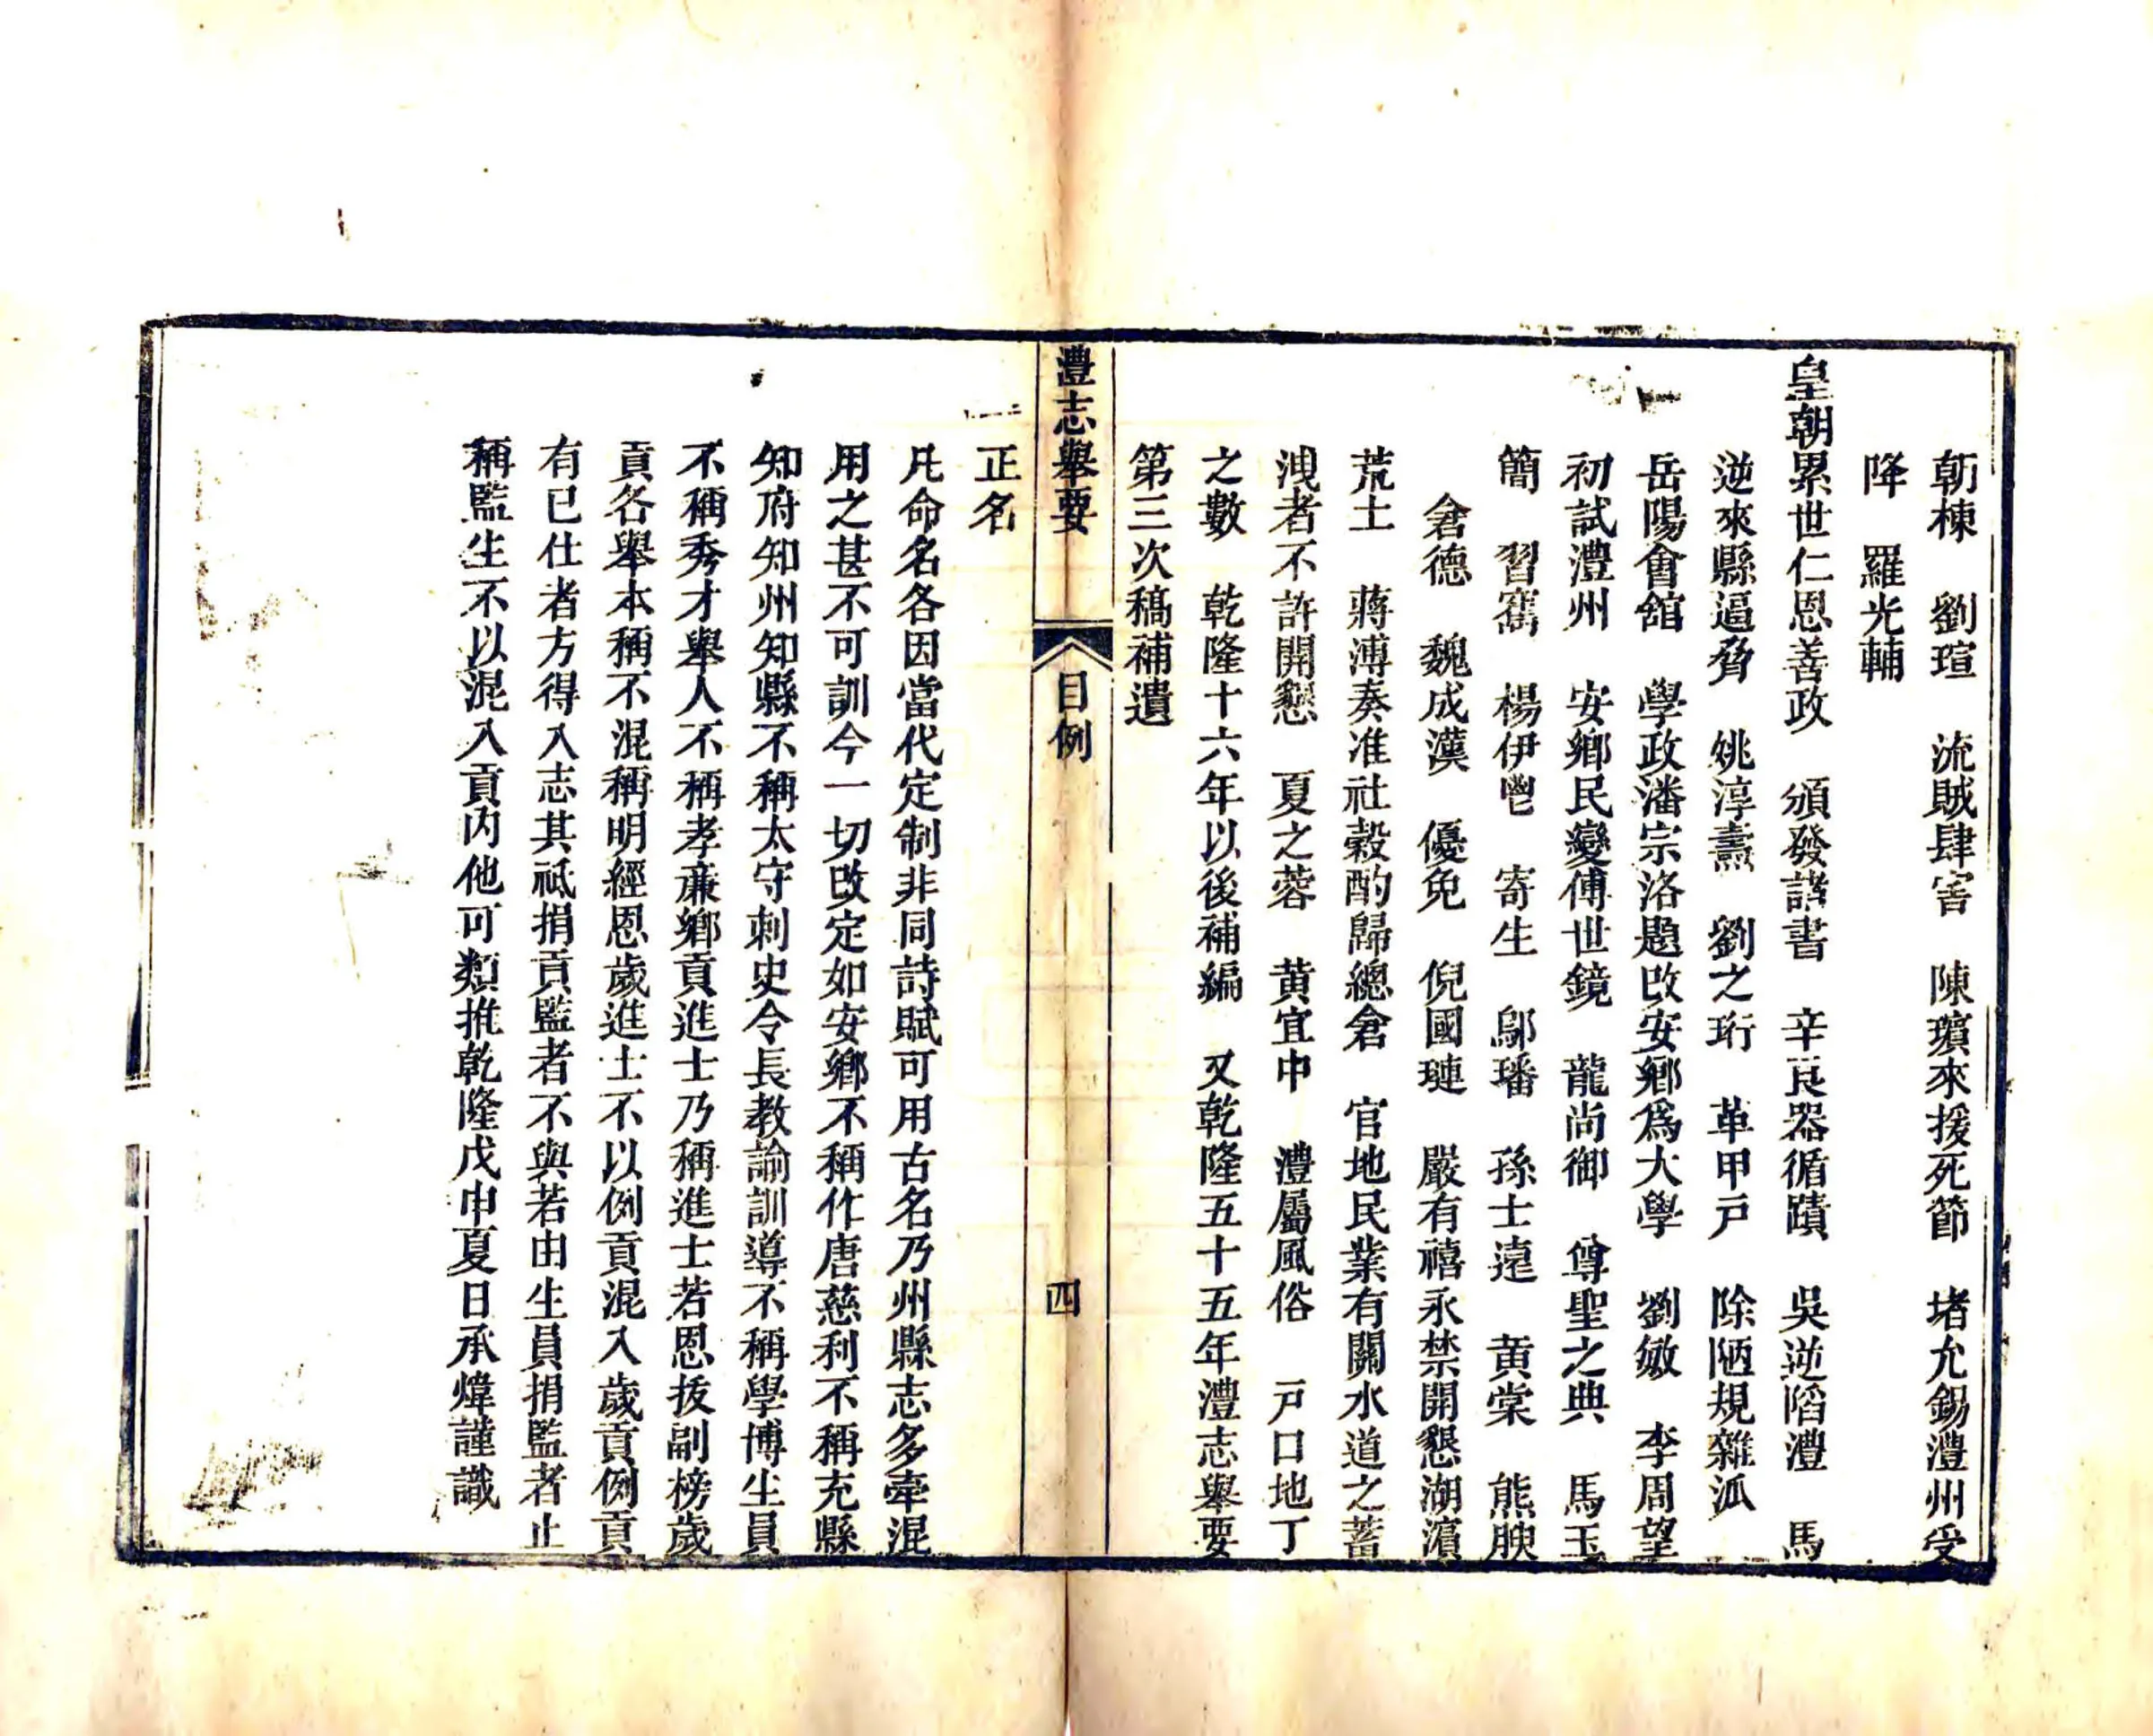 朝棟　劉瑄　流賊肆害　陳瓆來援死節　堵允錫澧州受
降　羅光輔
皇朝累世仁恩善政　頒發諸書　辛良器循蹟　吳逆陷澧　馬
逆來縣逼脅　姚淳燾　劉之珩　革甲戸　除陋規雜泒
岳陽會舘　學政潘宗洛題改安鄉爲大學　劉敏　李周望
初試澧州　安鄉民變傅世鏡　龍尚御　尊聖之典　馬玉
簡　習寯　楊伊鬯　寄生　鄔璠　孫士遠　黄棠　熊腴
倉德　魏成漢　優免　倪國璉　嚴有禧永禁開懇湖濵
荒土　蔣溥奏准社穀酌歸總倉　官地民業有關水道之蓄
洩者不許開懇　夏之蓉　黄宜中　澧屬風俗　戸口地丁
之數　乾隆十六年以後補編　又乾隆五十五年澧志舉要
第三次稿補遺
澧志舉要　目例　四
正名
凡命名各因當代定制非同詩賦可用古名乃州縣志多牽混
用之甚不可訓今一切改定如安鄉不稱作唐慈利不稱充縣
知府知州知縣不稱太守刺史令長教諭訓導不稱學博生員
不稱秀才舉人不稱孝亷鄉貢進士乃稱進士若恩抜副榜歲
貢各舉本稱不混稱明經恩歲進士不以例貢混入歲貢例貢
有已仕者方得入志其祗捐貢監者不與若由生員捐監者止
稱監生不以混入貢内他可類推乾隆戊申夏日承煒謹識